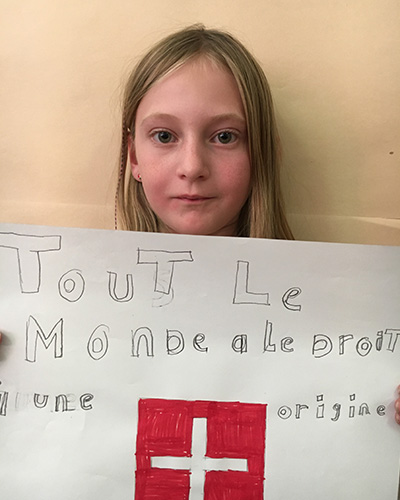 TOUT Le
MONDe a le DroiT
à une origine